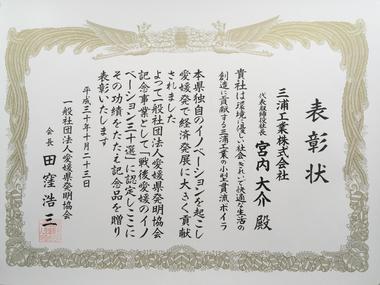 表彰状
三浦工業株式会社
代表取締役社長 宮内 大介 殿
貴社は環境に優しい社会、きれいで快適な生活の
創造に貢献する三浦工業の小型貫流ボイラ
本県独自のイノベーションを起こし
愛媛発で経済発展に大きく貢献
されました
よって一般社団法人愛媛県発明協会
記念事業として「戦後愛媛のイノ
ベーション三十選」に認定しここに
その功績をたたえ記念品を贈り
表彰いたします
平成三十年十月二十三日
一般社団法人愛媛県発明協会
会長 田窪 浩三